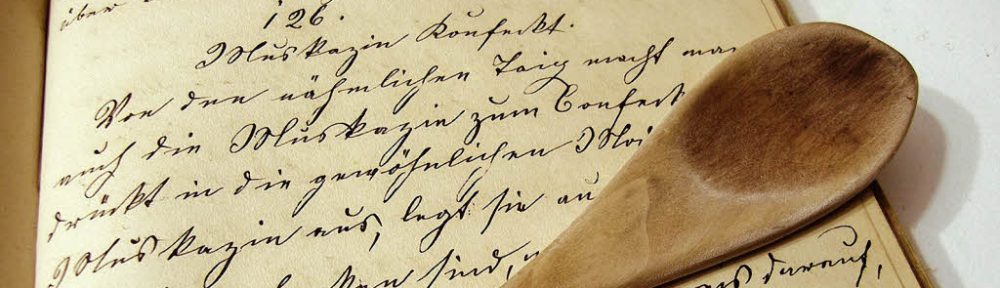 über
126.
Muskazin Konfeckt.
Von den nähmlichen Taig macht man
auch die Muskazin zum Confeckt
drückt in die gewöhnlichen
Muskazin aus, legt sie au
sind,
darauf,